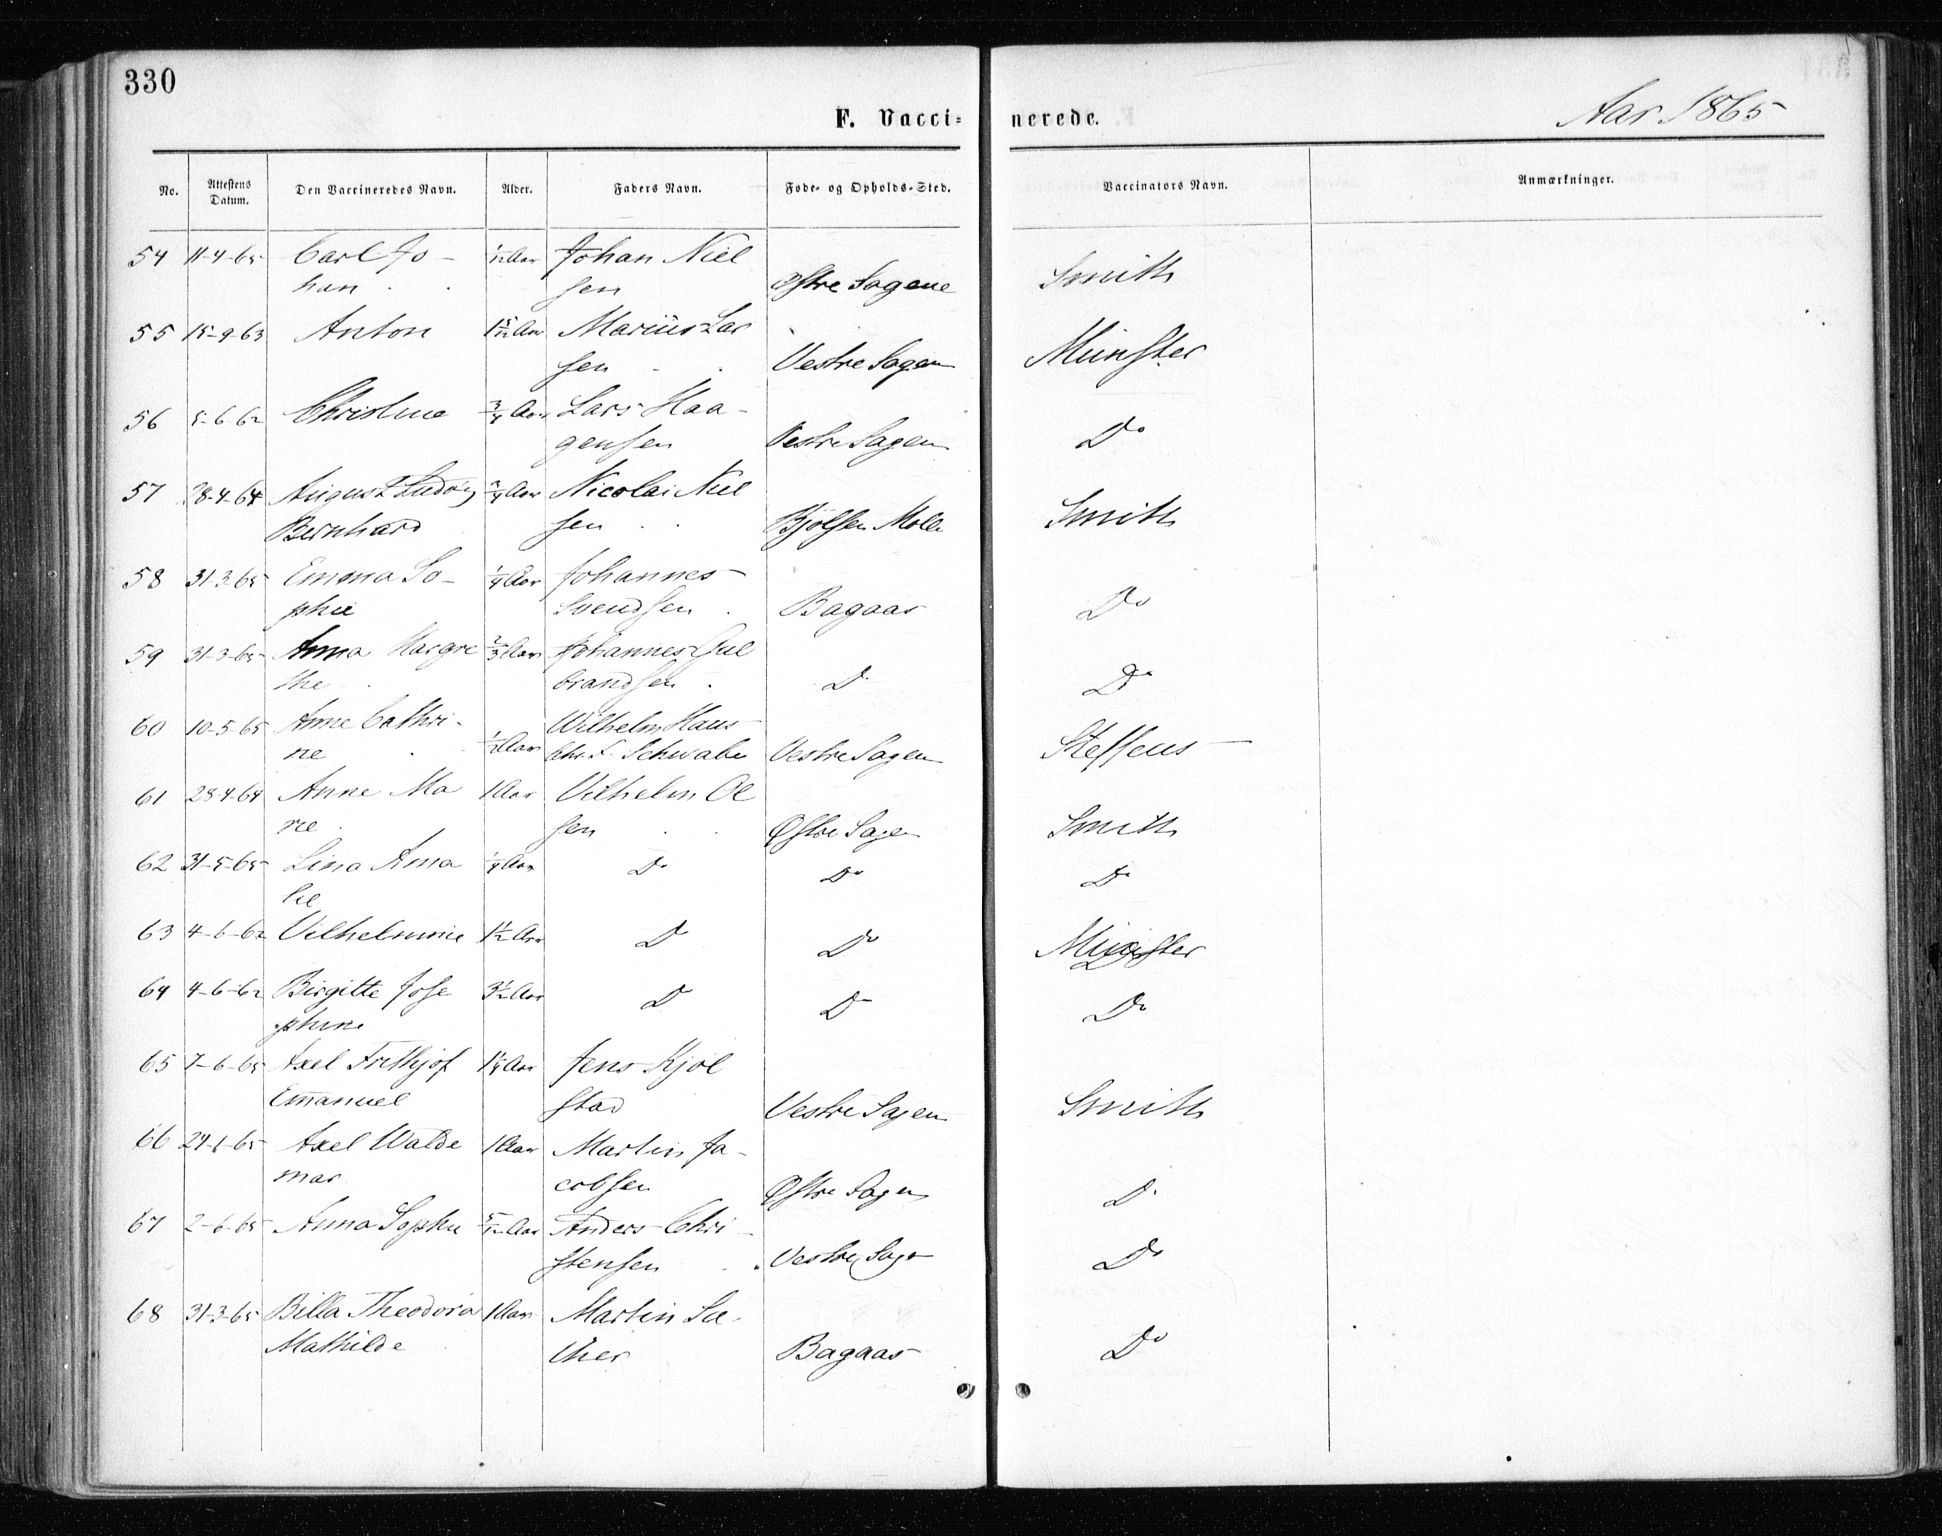 330
F. Vacci-
nerede.
Aar 1865
No. Attestens Datum. Den Vaccineredes Navn. Alder. Faders Navn. Føde- og Opholds-Sted. Vaccinators Navn. Anmærkninger.
54 11-4-65 Carl Jo- Aar Johan Niel
han sen Østre Sagene Smith
55 15-9-63 Anton 1 5/12 Aar Marius Lar
sen Vestre Sagen Münster
56 5-6-62 Christine 3/4 Aar Lars Haa-
gensen Vestre Sagen Do
57 28-4-64 August Ludvig 3/4 Aar Nicolai Niel
Bernhard sen Bjølsen Mølle Smith
58 31-3-65 Emma So- 1/4 Aar Johannes
phie Svendsen Bagaas Do
59 31-3-65 Anna Margre 2/3 Aar Johannes Gul
the brandsen D Do
60 10-5-65 Anne Cathri- Wilhelm Hans
ne 1/2 Aar Chr. F. Schwabe Vestre Sagen Steffens
61 28-4-64 Anne Ma 1 Aar Vilhelm Ol
rie sen Østre Sagen Smith
62 31-5-65 Lina Ama 1/4 Aar Do Do Do
lie
63 4-6-62 Vilhelmine 1 1/2 Aar D Do Münster
64 4-6-62 Birgitte Jose 3 1/2 Aar D D Do
phine
65 7-6-65 Axel Frithjof 1 1/4 Aar Jens Kjøl
Emanuel stad Vestre Sagen Smith
66 24-1-65 Axel Walde 1 Aar Martin Ja-
mar cobsen Østre Sagen D
67 2-6-65 Anna Sophie 5/12 Aar Anders Chri-
stensen Vestre Sag Do
68 31-3-65 Billa Theodora 1 Aar Martin Sæ-
Mathilde ther Bagaas Do